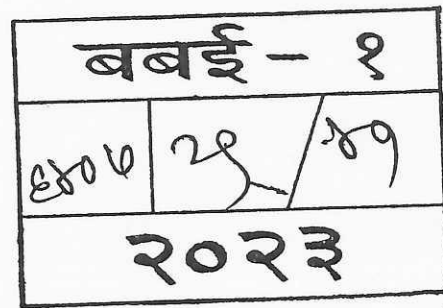 बबई - १
६४०५ २९/४१
२०२३